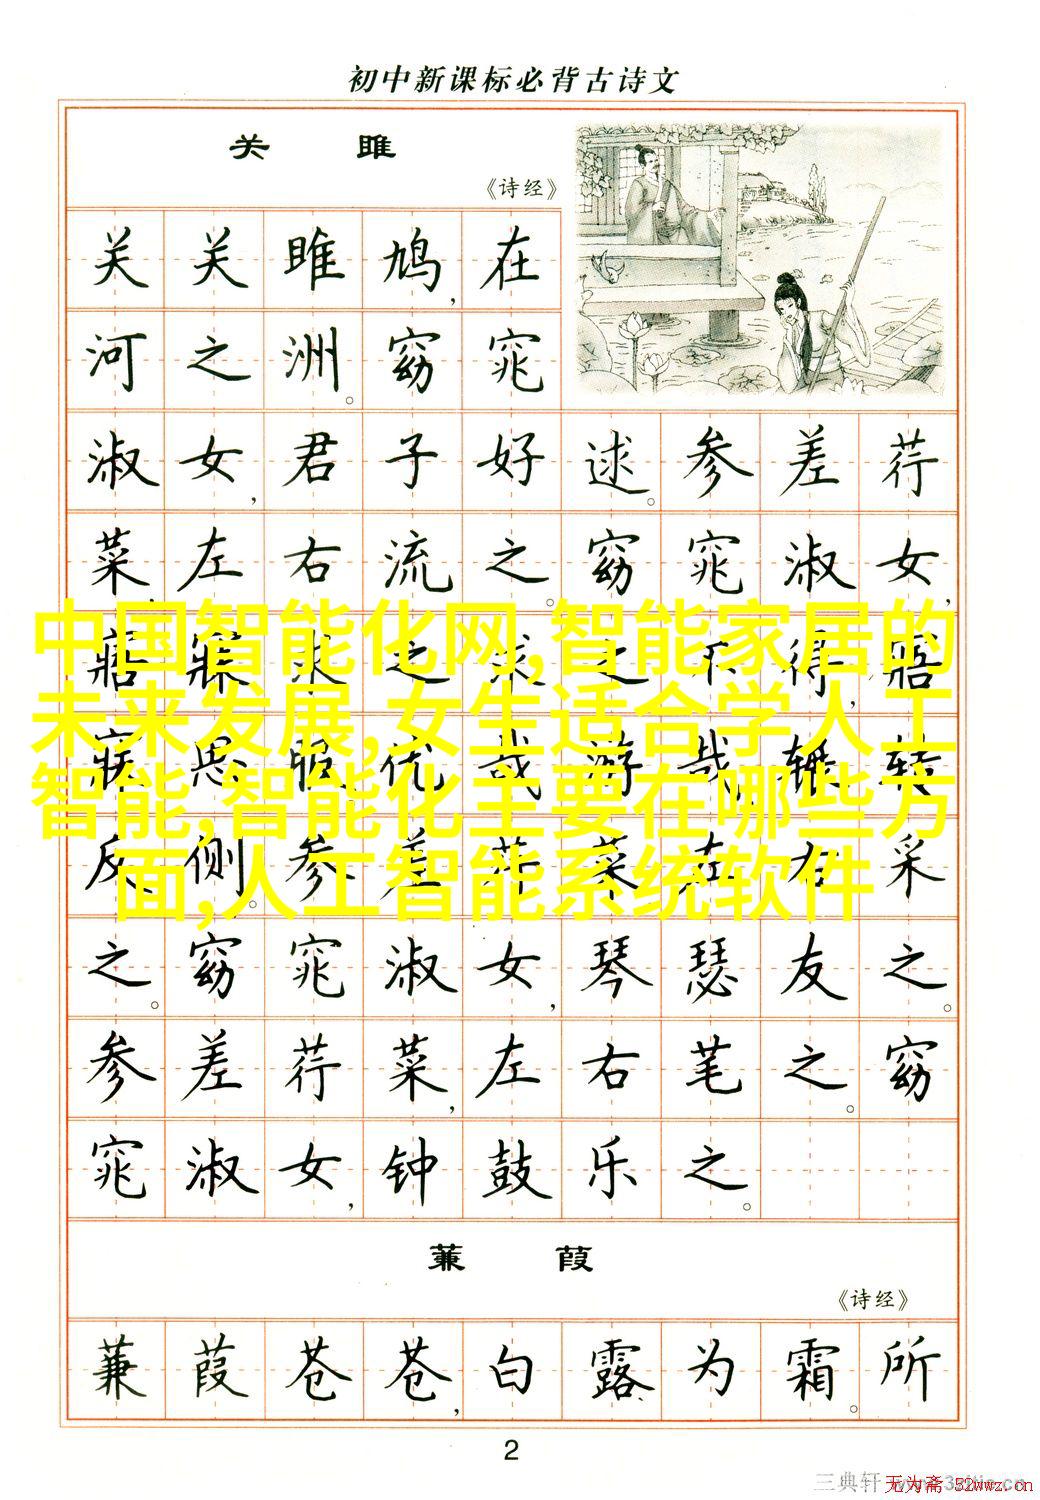 初中新课标必背古诗文
关 雎
《诗经》
关关雎鸠,在
河之洲。窈窕
淑女,君子好逑。参差荇
菜,左右流之。窈窕淑女,
中国智能化网,智能家居的
寤寐求之。求之不得,寤
未来发展,女生适合学人工
寐思服。优哉游哉,辗转
智能,智能化主要在哪些方
反侧。参差荇菜,左右采
面,人工智能系统软件
之。窈窕淑女,琴瑟友之。
参差荇菜,左右芼之。窈
窕淑女,钟鼓乐之。
蒹 葭
《诗经》
蒹葭苍苍,白露为霜。所
2
三典轩
无为斋 52wwz.cn